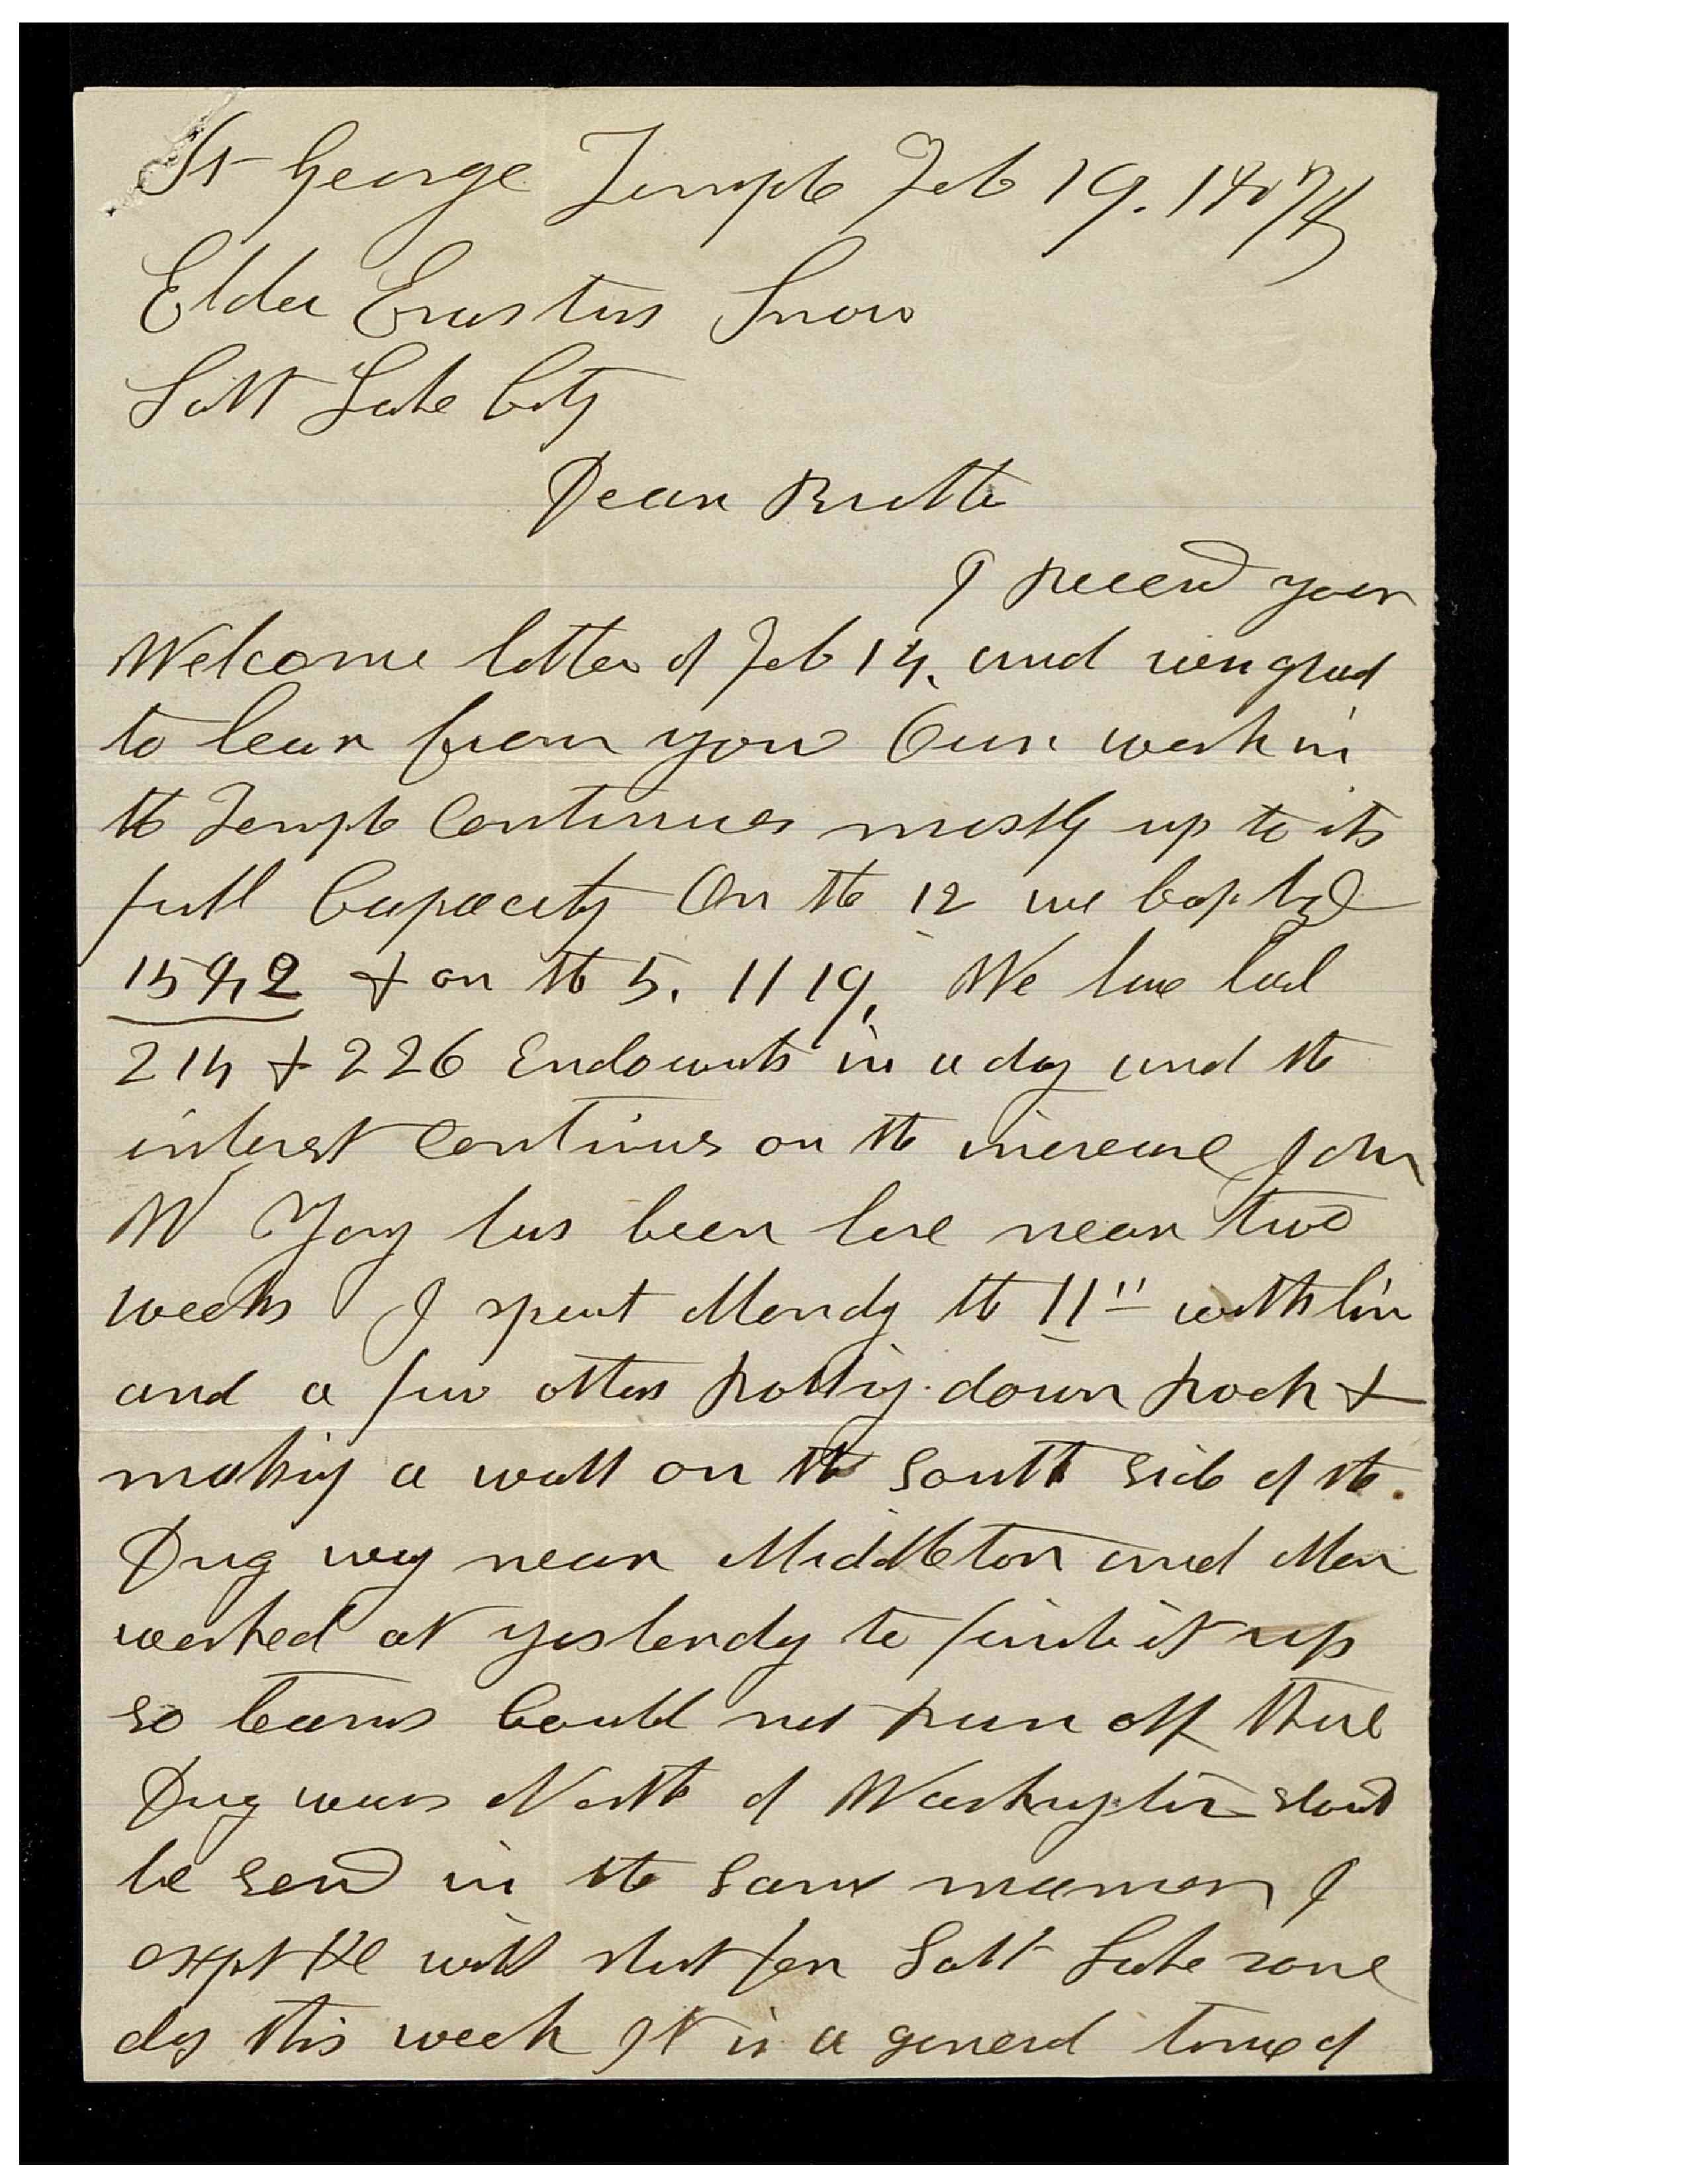 St George Temple Feb 19. 1878
Elder Erastus Snow
Salt Lake City
Dear Brother
I receivd your
Welcome letter of Feb 14, and was glad
to hear from you Our work in
the Temple Continues mostly up to its
full Capacity On the 12 we baptizd
1592 & on the 5. 1119, We have had
214 & 226 Endowmts in a day and the
interest Continues on the increase John
W Yong has been here near two
weeks I spent Mondy the 11" with him
and a few others rolling down rock &
making a wall on the South Side of the
Dug way near Middleton and Men
worked at yesterdy to finish it up
so teams Could not run off Those
Dug ways North of Washington should
be servd in the Same manner I
expt He will start for Salt Lake some
day this week It is a general time of